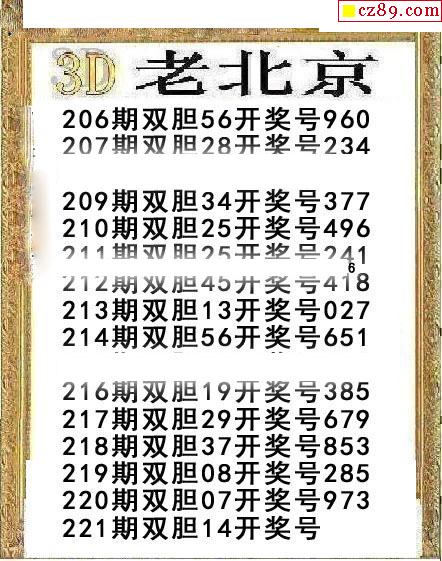 cz89.com
3D 老北京
206期双胆56开奖号960
207期双胆28开奖号234
209期双胆34开奖号377
210期双胆25开奖号496
211期双胆25开奖号241
6
212期双胆45开奖号418
213期双胆13开奖号027
214期双胆56开奖号651
216期双胆19开奖号385
217期双胆29开奖号679
218期双胆37开奖号853
219期双胆08开奖号285
220期双胆07开奖号973
221期双胆14开奖号